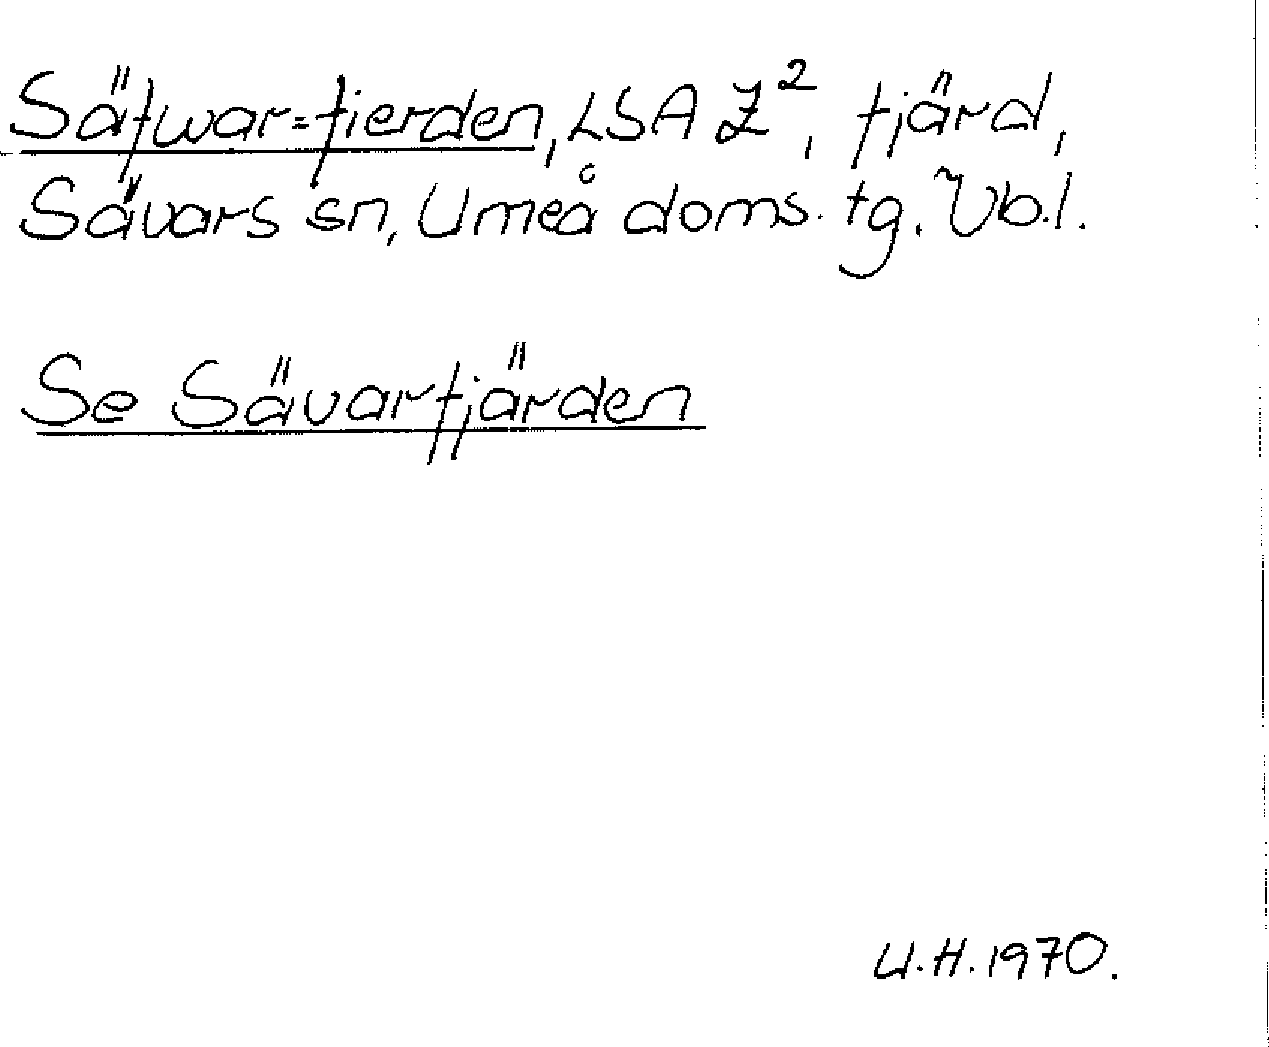 Säfwar=fierden, LSA Z², fjärd,
Sävars sn, Umeå doms. tg. Vb.l.
Se Sävarfjärden
U.H. 1970.